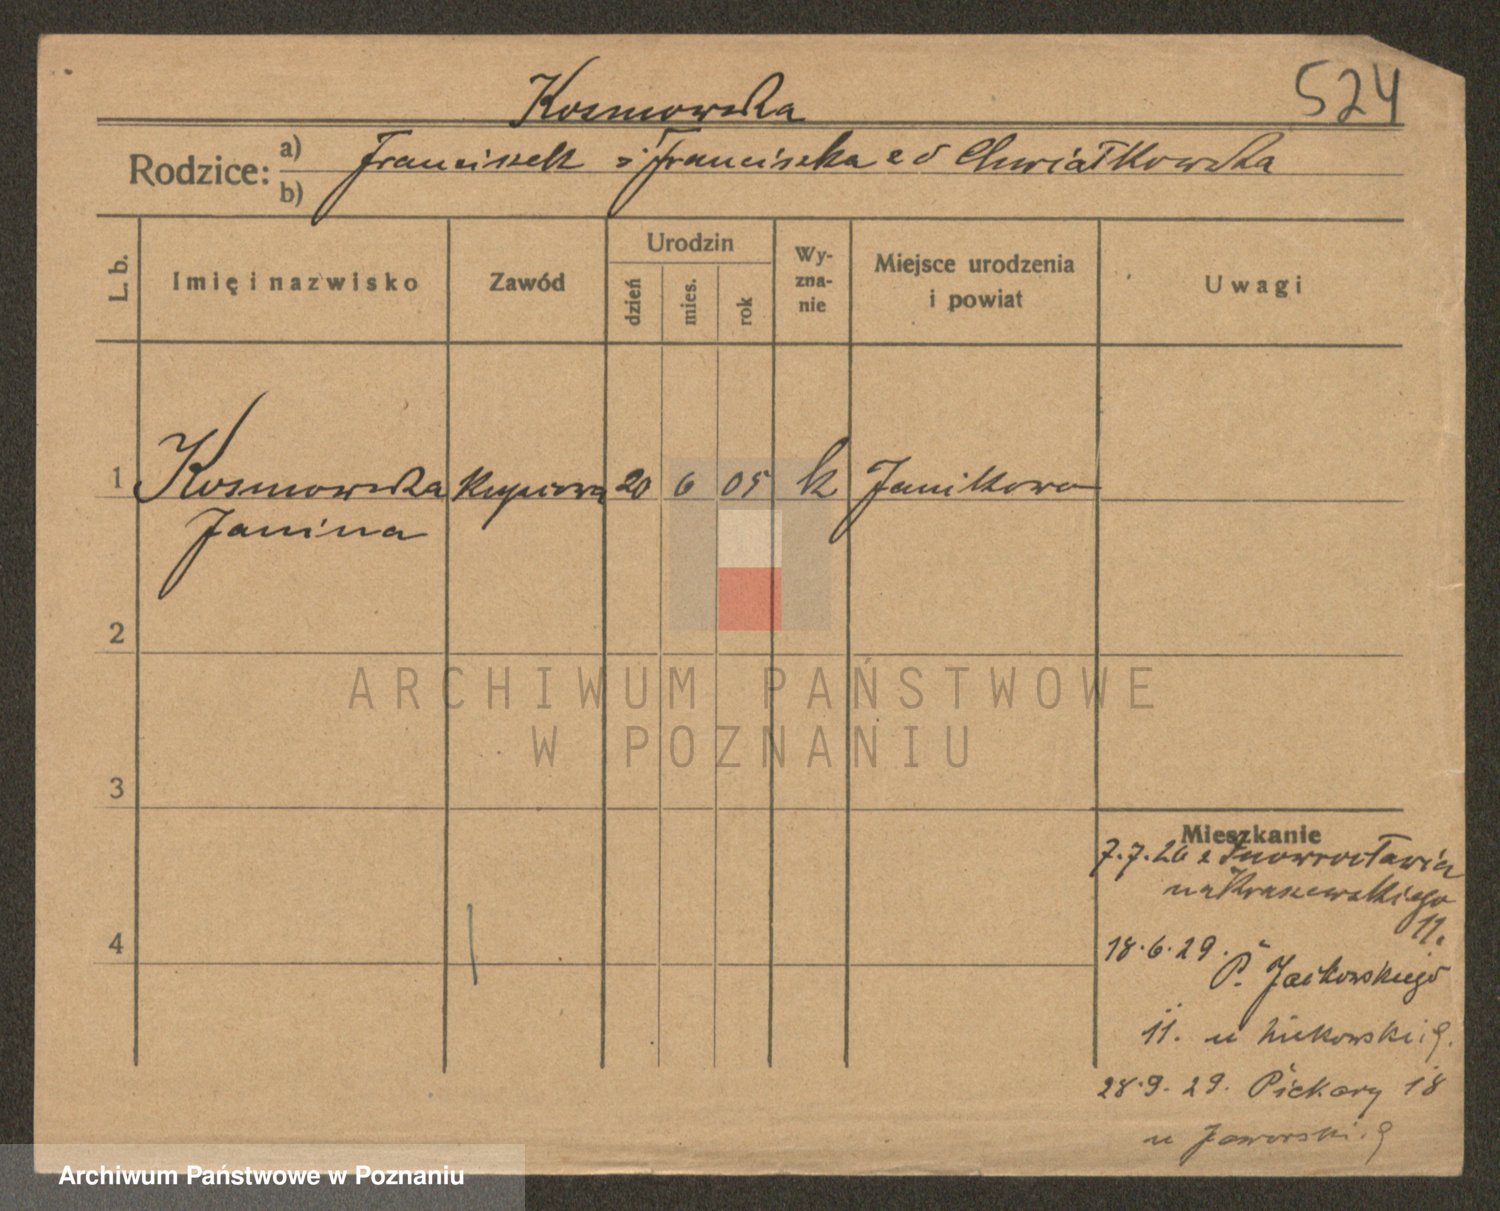 524
Kosmowska
Rodzice: a) Franciszek i Franciszka z d Chwiałkowska
b)
L. b. Imię i nazwisko Zawód Urodzin dzień mies. rok Wyznanie Miejsce urodzenia i powiat Uwagi
1 Kosmowska 20 6 05 k Janikowo
Janina
2
ARCHIWUM PAŃSTWOWE
W POZNANIU
3
Mieszkanie
7.7.26 z Inowrocławia
na Kraszewskiego
11.
4
18.6.29. P. Jackowskiego
11. u
28.9.29. Piekary 18
u Jaworski
Archiwum Państwowe w Poznaniu